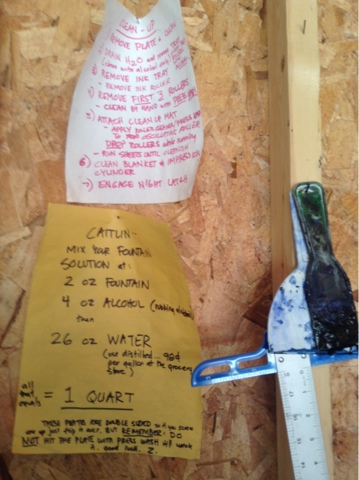 CLEAN-UP
REMOVE PLATE + CLEAN
DRAIN H2O and
REMOVE INK TRAY
- REMOVE INK ROLLER
REMOVE FIRST 2 ROLLERS
- CLEAN BY HAND with
ATTACH CLEAN UP MAT
- APPLY ROLLER
TO TOP OSCILLATING ROLLER
DROP ROLLERS while running
- RUN SHEETS UNTIL CLEAN
6) CLEAN BLANKET & IMPRESSION
CYLINDER
7) ENGAGE NIGHT LATCH
CAITLIN:
MIX YOUR FOUNTAIN
SOLUTION at:
2 OZ FOUNTAIN
4 OZ ALCOHOL (rubbing
then
26 OZ WATER
(use distilled... 98¢
per gallon at the grocery
store)
all
that
equals = 1 QUART
THESE PLATES ARE DOUBLE SIDED so if you screw
one up just flip it over. BUT REMEMBER: DO
NOT HIT THE PLATE WITH PRESS WASH
good luck. Z.